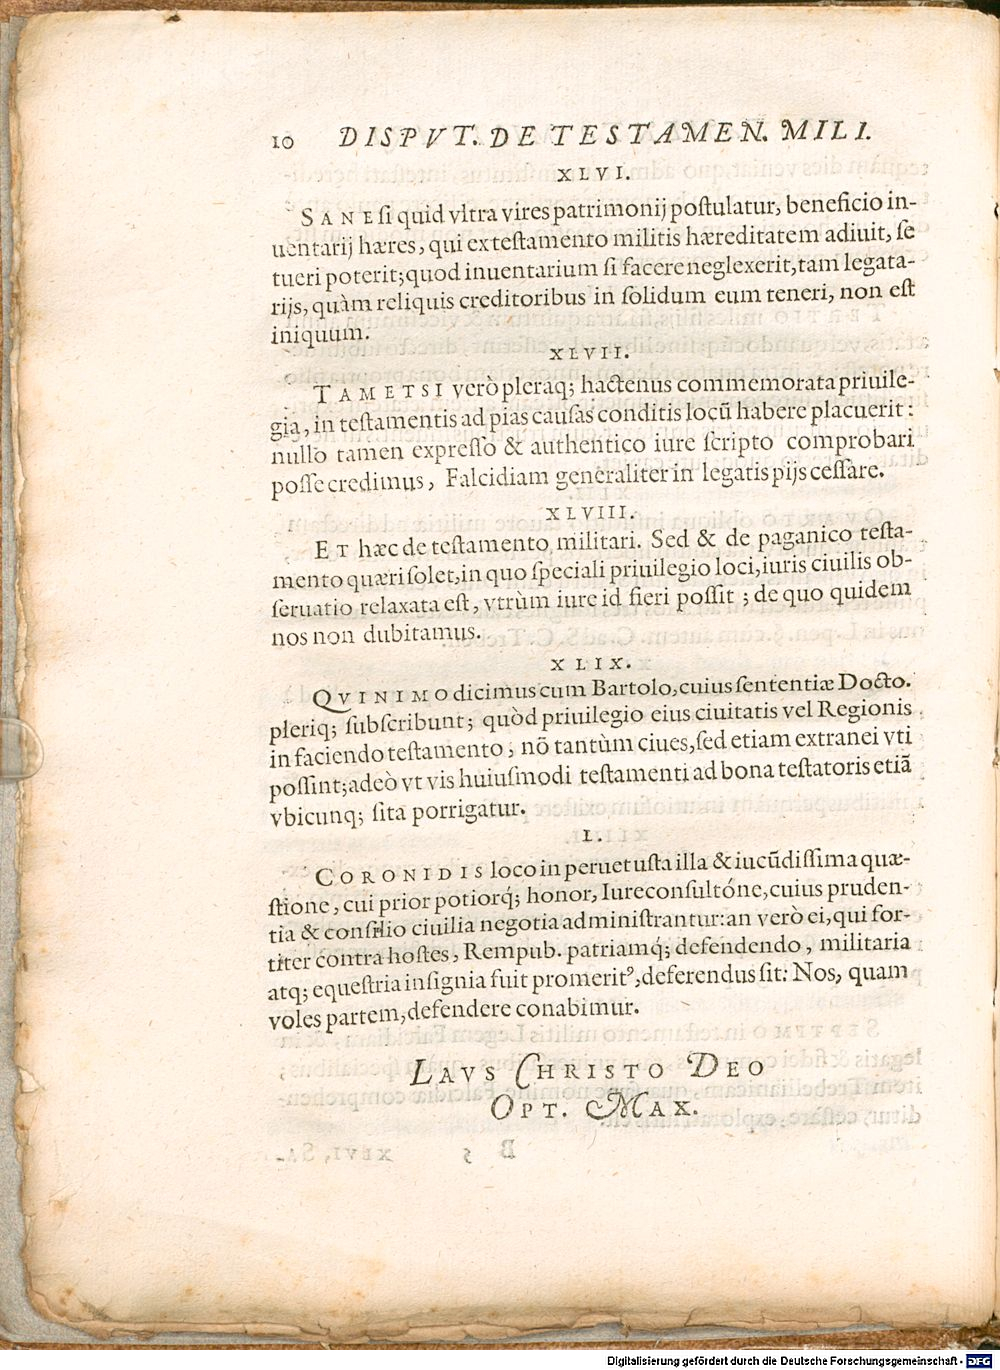 10 DISPVT. DE TESTAMEN. MILI.
XLVI.
SANE si quid vltra vires patrimonij postulatur, beneficio in-
uentarij hæres, qui ex testamento militis hæreditatem adiuit, se
tueri poterit; quod inuentarium si facere neglexerit, tam legata-
rijs, quàm reliquis creditoribus in solidum eum teneri, non est
iniquum.
XLVII.
TAMETSI verò pleraq; hactenus commemorata priuile-
gia, in testamentis ad pias causas conditis locū habere placuerit:
nullo tamen expresso & authentico iure scripto comprobari
posse credimus, Falcidiam generaliter in legatis pijs cessare.
XLVIII.
ET hæc de testamento militari. Sed & de paganico testa-
mento quæri solet, in quo speciali priuilegio loci, iuris ciuilis ob-
seruatio relaxata est, vtrùm iure id fieri possit; de quo quidem
nos non dubitamus.
XLIX.
QVINIMO dicimus cum Bartolo, cuius sententiæ Docto.
pleriq; subscribunt; quòd priuilegio eius ciuitatis vel Regionis
in faciendo testamento, nō tantùm ciues, sed etiam extranei vti
possint; adeò vt vis huiusmodi testamenti ad bona testatoris etiā
vbicunq; sita porrigatur.
L.
CORONIDIS loco in peruetusta illa & iucūdissima quæ-
stione, cui prior potiorq́; honor, Iureconsultóne, cuius pruden-
tia & consilio ciuilia negotia administrantur: an verò ei, qui for-
titer contra hostes, Rempub. patriamq́; defendendo, militaria
atq; equestria insignia fuit promeritꝰ, deferendus sit: Nos, quam
voles partem, defendere conabimur.
LAVS CHRISTO DEO
OPT. MAX.
Digitalisierung gefördert durch die Deutsche Forschungsgemeinschaft - DFG